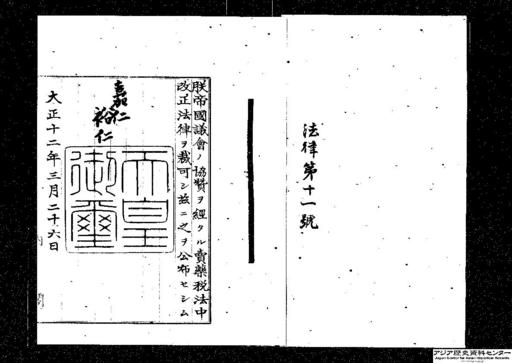 法律第十一號
朕帝國議會ノ協贊ヲ經タル賣藥税法中
改正法律ヲ裁可シ茲ニ之ヲ公布セシム
嘉仁
裕仁
天皇御璽
大正十二年三月二十六日
アジア歴史資料センター
Japan Center for Asian Historical Records